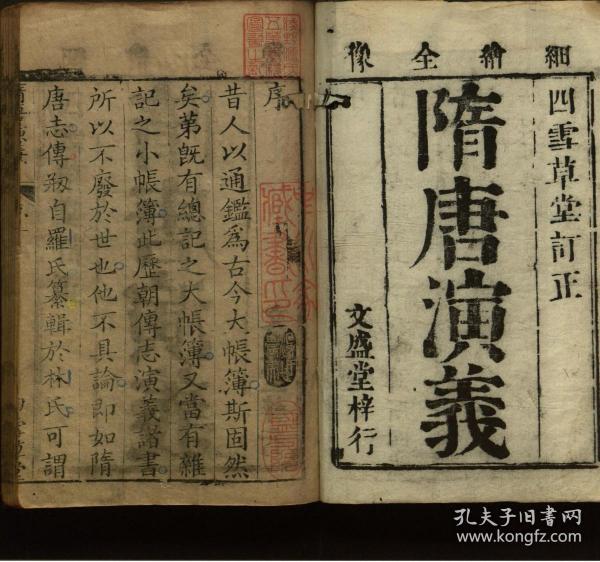 細繪全像
四雪草堂訂正
隋唐演義
文盛堂梓行
序
昔人以通鑑為古今大帳簿斯固然
矣第既有總記之大帳簿又當有雜
記之小帳簿此歷朝傳志演義諸書
所以不廢於世也他不具論即如隋
唐志傳剏自羅氏纂輯於林氏可謂
孔夫子旧书网
www.kongfz.com